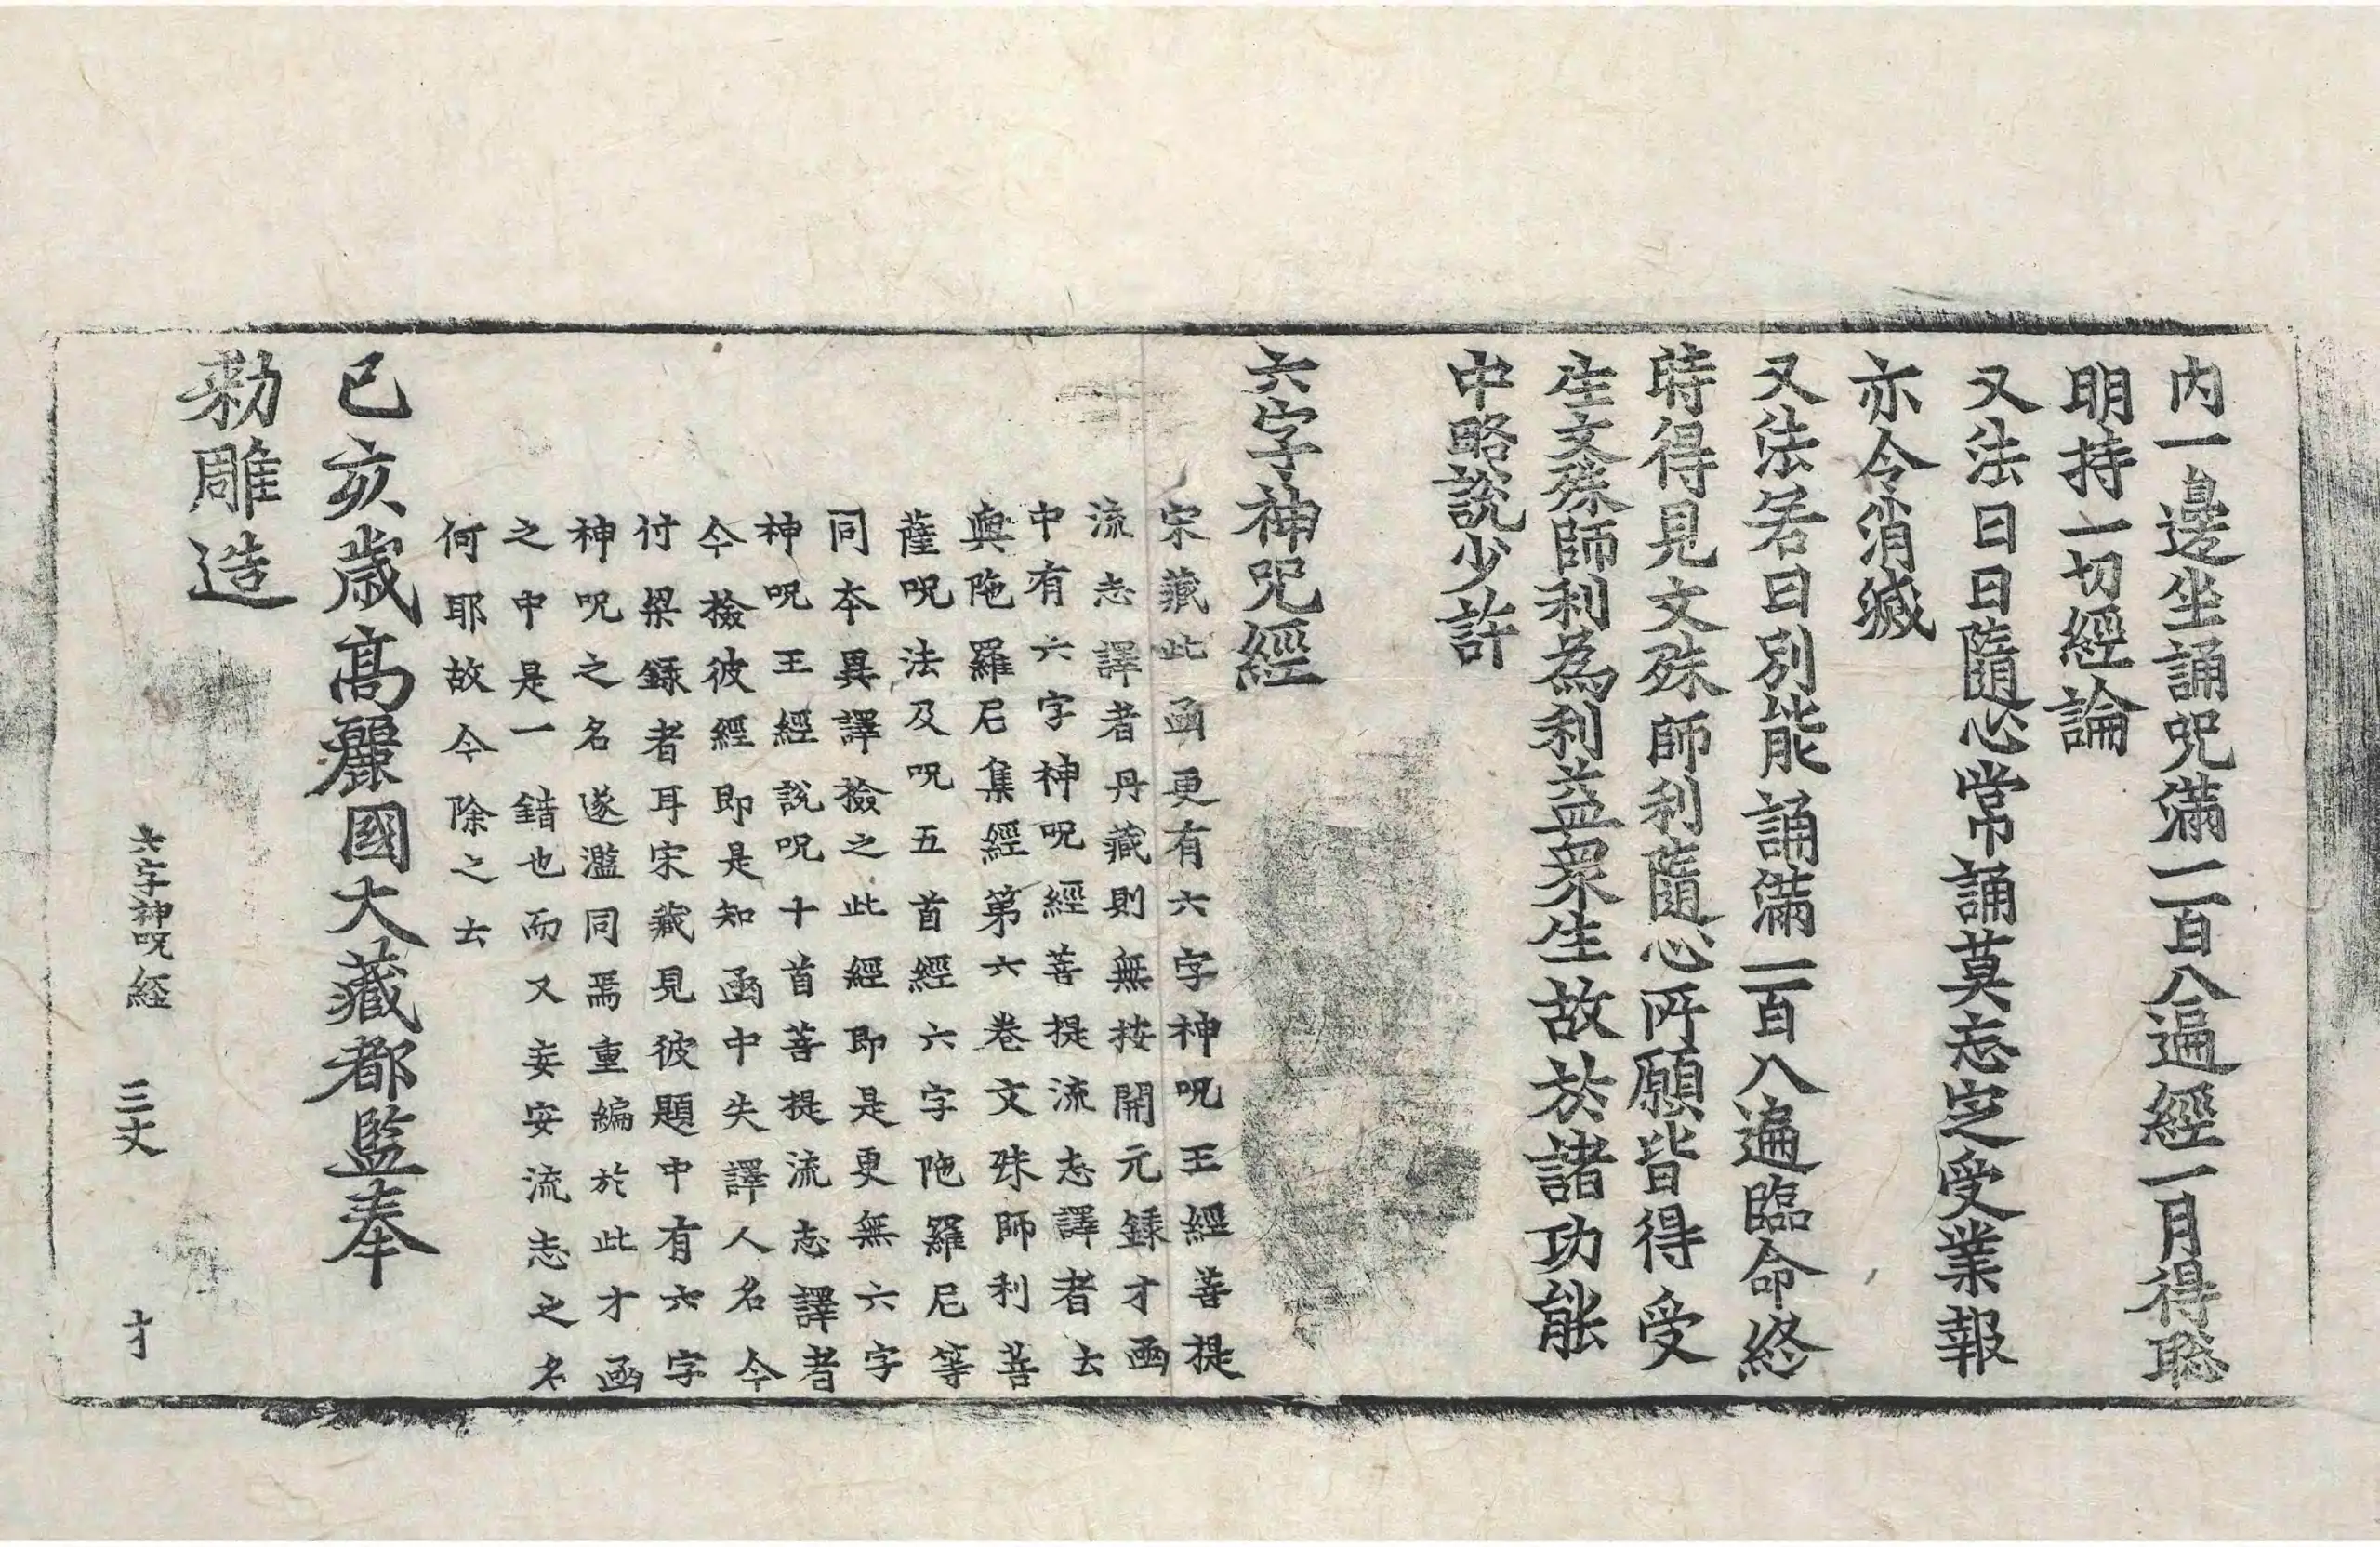 内一邊坐誦呪滿一百八遍經一月得聡
明持一切經論
又法日日隨心常誦莫忘㝎受業報
亦令消滅
又法若日別能誦滿一百八遍臨命終
時得見文殊師利隨心所願皆得受
生文殊師利為利益衆生故於諸功能
中略説少許
六字神呪經
宋藏此函更有六字神呪王經菩提
流志譯者丹藏則無按開元録才函
中有六字神呪經菩提流志譯者云
與陁羅尼集經第六卷文殊師利菩
薩呪法及呪五首經六字陁羅尼等
同本異譯撿之此經即是更無六字
神呪王經說呪十首菩提流志譯者
今撿彼經即是知函中失譯人名今
付梁録者耳宋藏見彼題中有六字
神呪之名遂濫同焉重編於此才函
之中是一錯也而又妄安流志之名
何耶故今除之云
己亥歳髙麗國大藏都監奉
勑雕造
六字神呪経 三丈 才